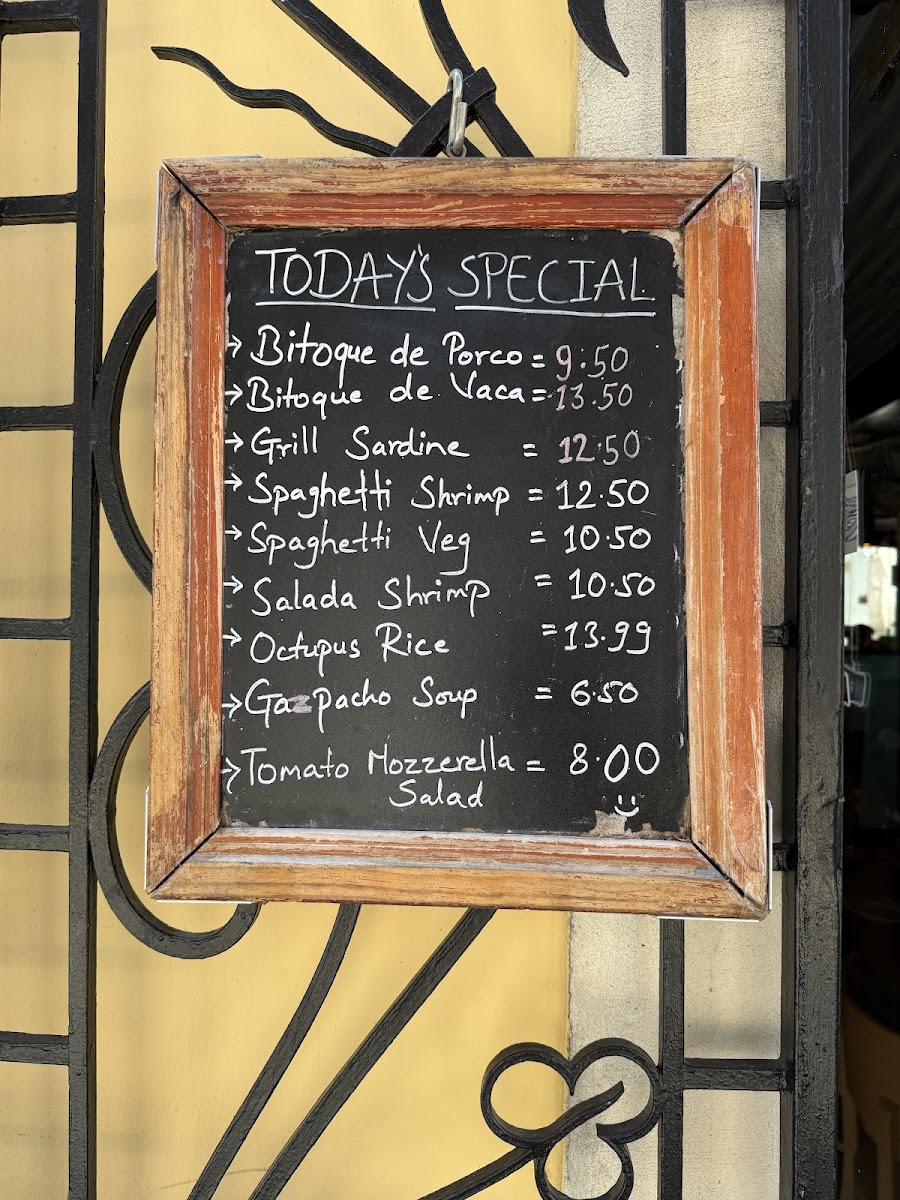 TODAY'S SPECIAL
→ Bitoque de Porco = 9.50
→ Bitoque de Vaca = 13.50
→ Grill Sardine = 12.50
→ Spaghetti Shrimp = 12.50
→ Spaghetti Veg = 10.50
→ Salada Shrimp = 10.50
→ Octupus Rice = 13.99
→ Gazpacho Soup = 6.50
→ Tomato Mozzerella = 8.00
Salad